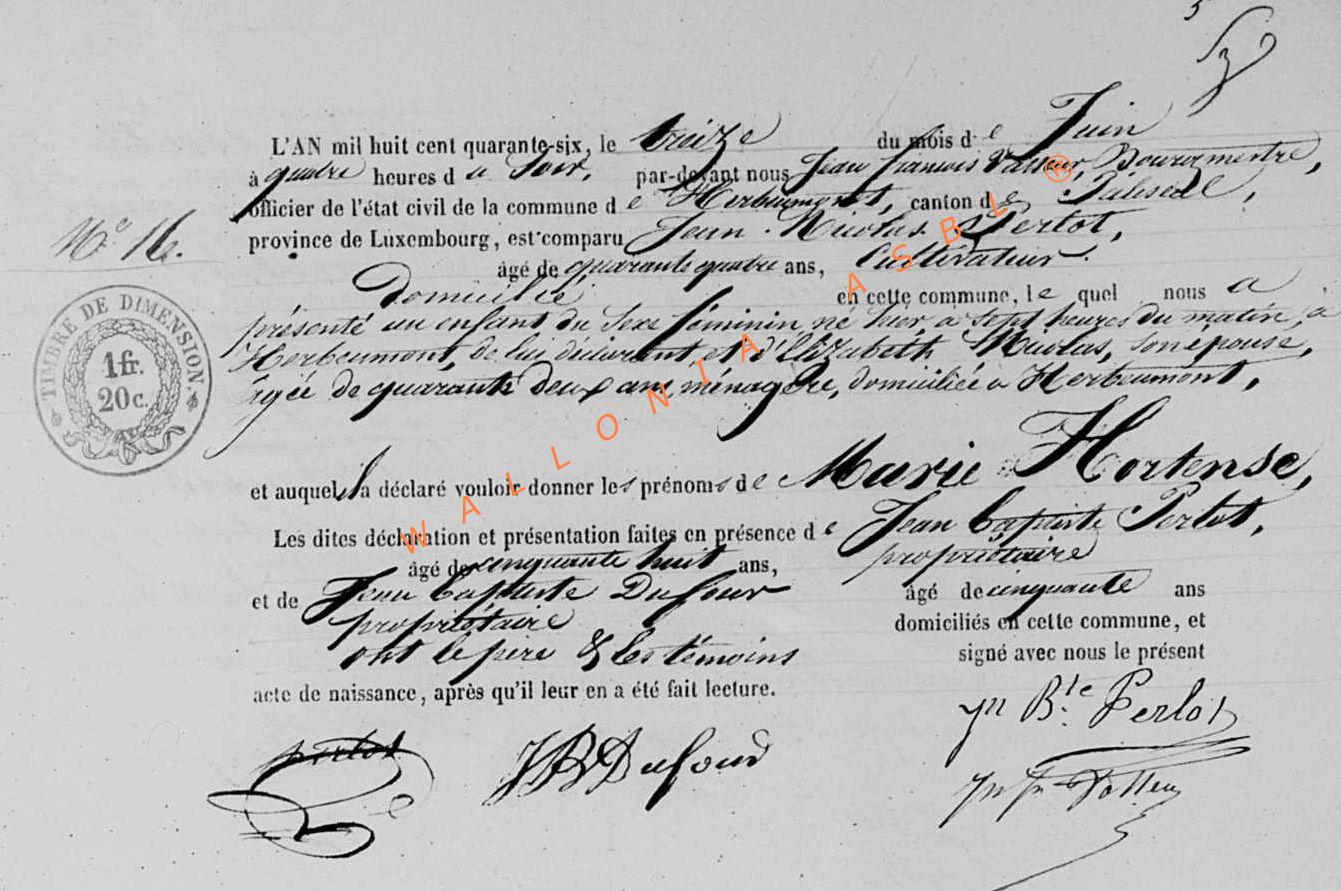 5
L'AN mil huit cent quarante-six, le treize du mois de Juin
à quatre heures du Soir, par-devant nous Jean françois Bourgmestre,
officier de l'état civil de la commune de Herbeumont, canton de Paliseul,
N° 16.
province de Luxembourg, est comparu Jean Nicolas Perlot,
âgé de quarante quatre ans, Cultivateur
Domicilié en cette commune, le quel nous a
présenté un enfant du Sexe féminin né hier, à sept heures du matin, à
Herbeumont, de lui déclarant et d'Elizabeth Nicolas, son épouse,
agée de quarante deux ans, ménagère, domiciliée à Herbeumont,
TIMBRE DE DIMENSION
1 fr.
20 c.
et auquel il a déclaré vouloir donner les prénoms de Marie Hortense,
Les dites déclaration et présentation faites en présence de Jean baptiste Perlot,
âgé de cinquante huit ans, propriétaire
et de Jean baptiste Dufour âgé de cinquante ans
propriétaire domiciliés en cette commune, et
ont le père & les témoins signé avec nous le présent
acte de naissance, après qu'il leur en a été fait lecture.
Jn Bte Perlot
perlot JB Dufour
WALLONIA ASBL ®